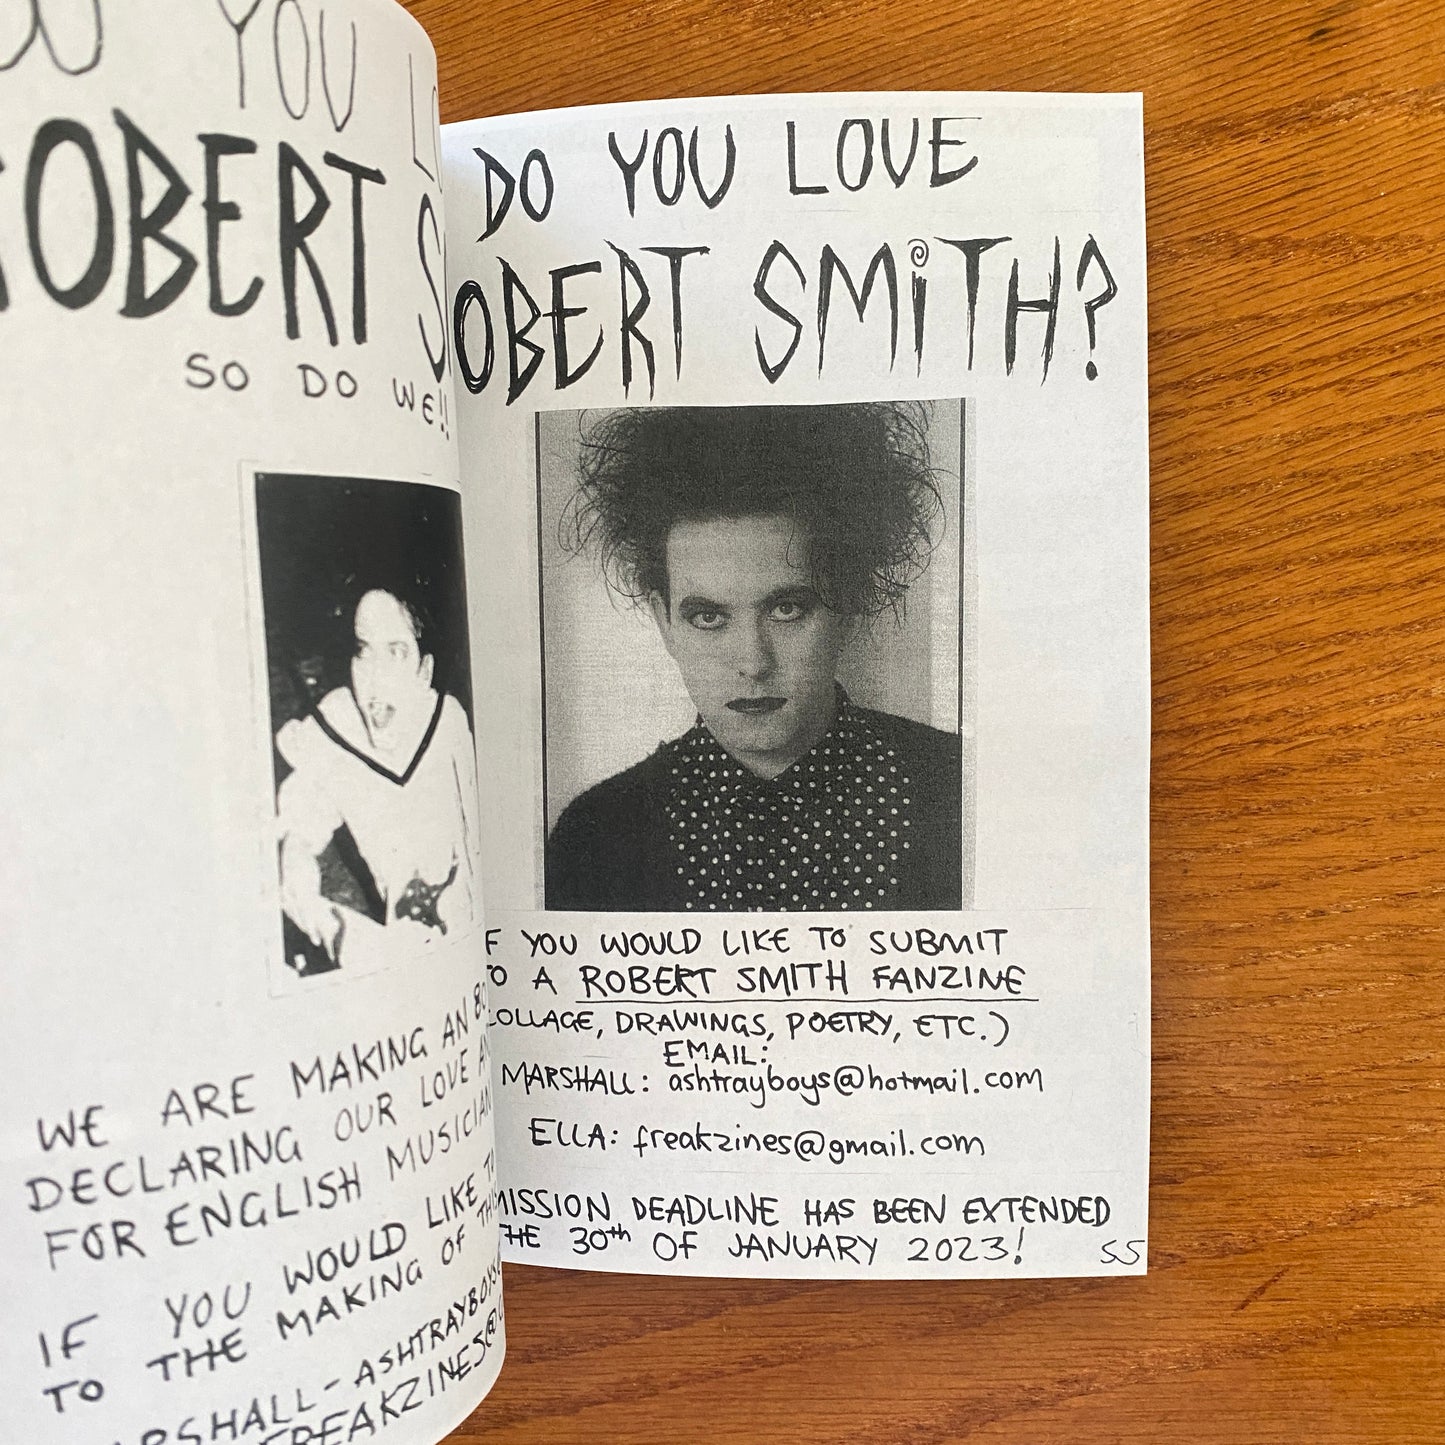 YOU
OBERT S
SO DO WE!!
WE ARE MAKING AN
DECLARING OUR LOVE
FOR ENGLISH MUSICIAN
IF YOU WOULD LIKE TO
TO THE MAKING OF THIS
MARSHALL - ASHTRAYBOYS
FREAKZINES@
DO YOU LOVE
OBERT SMiTH?
F YOU WOULD LIKE TO SUBMIT
TO A ROBERT SMITH FANZINE
COLLAGE, DRAWINGS, POETRY, ETC.)
EMAIL:
MARSHALL: ashtrayboys@hotmail.com
ELLA: freakzines@gmail.com
MISSION DEADLINE HAS BEEN EXTENDED
THE 30th OF JANUARY 2023!
55